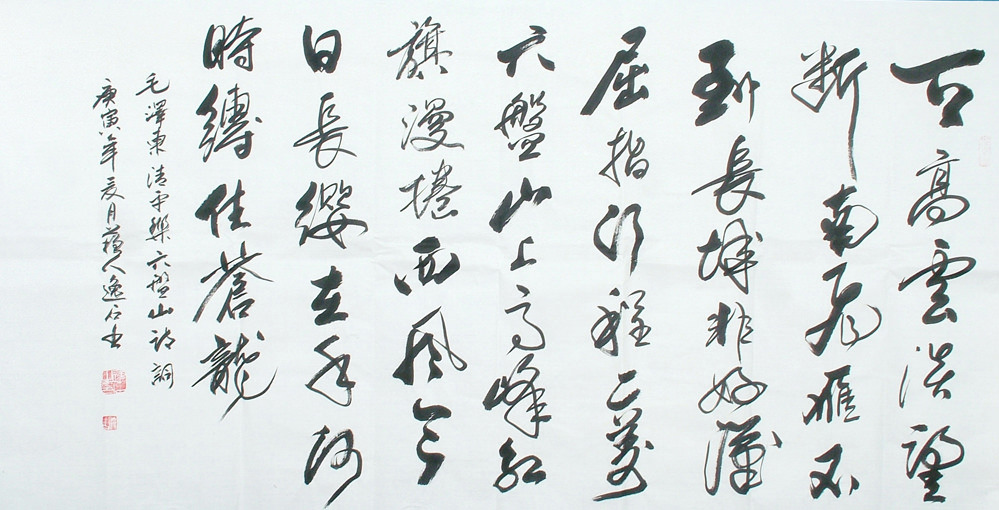 天高雲淡望
断南飛雁不
到長城非好漢
屈指行程二萬
六盤山上高峰紅
旗漫捲西風今
日長纓在手何
時縛住蒼龍
毛澤東清平樂六盤山詩詞
庚寅年夏月人逸石書